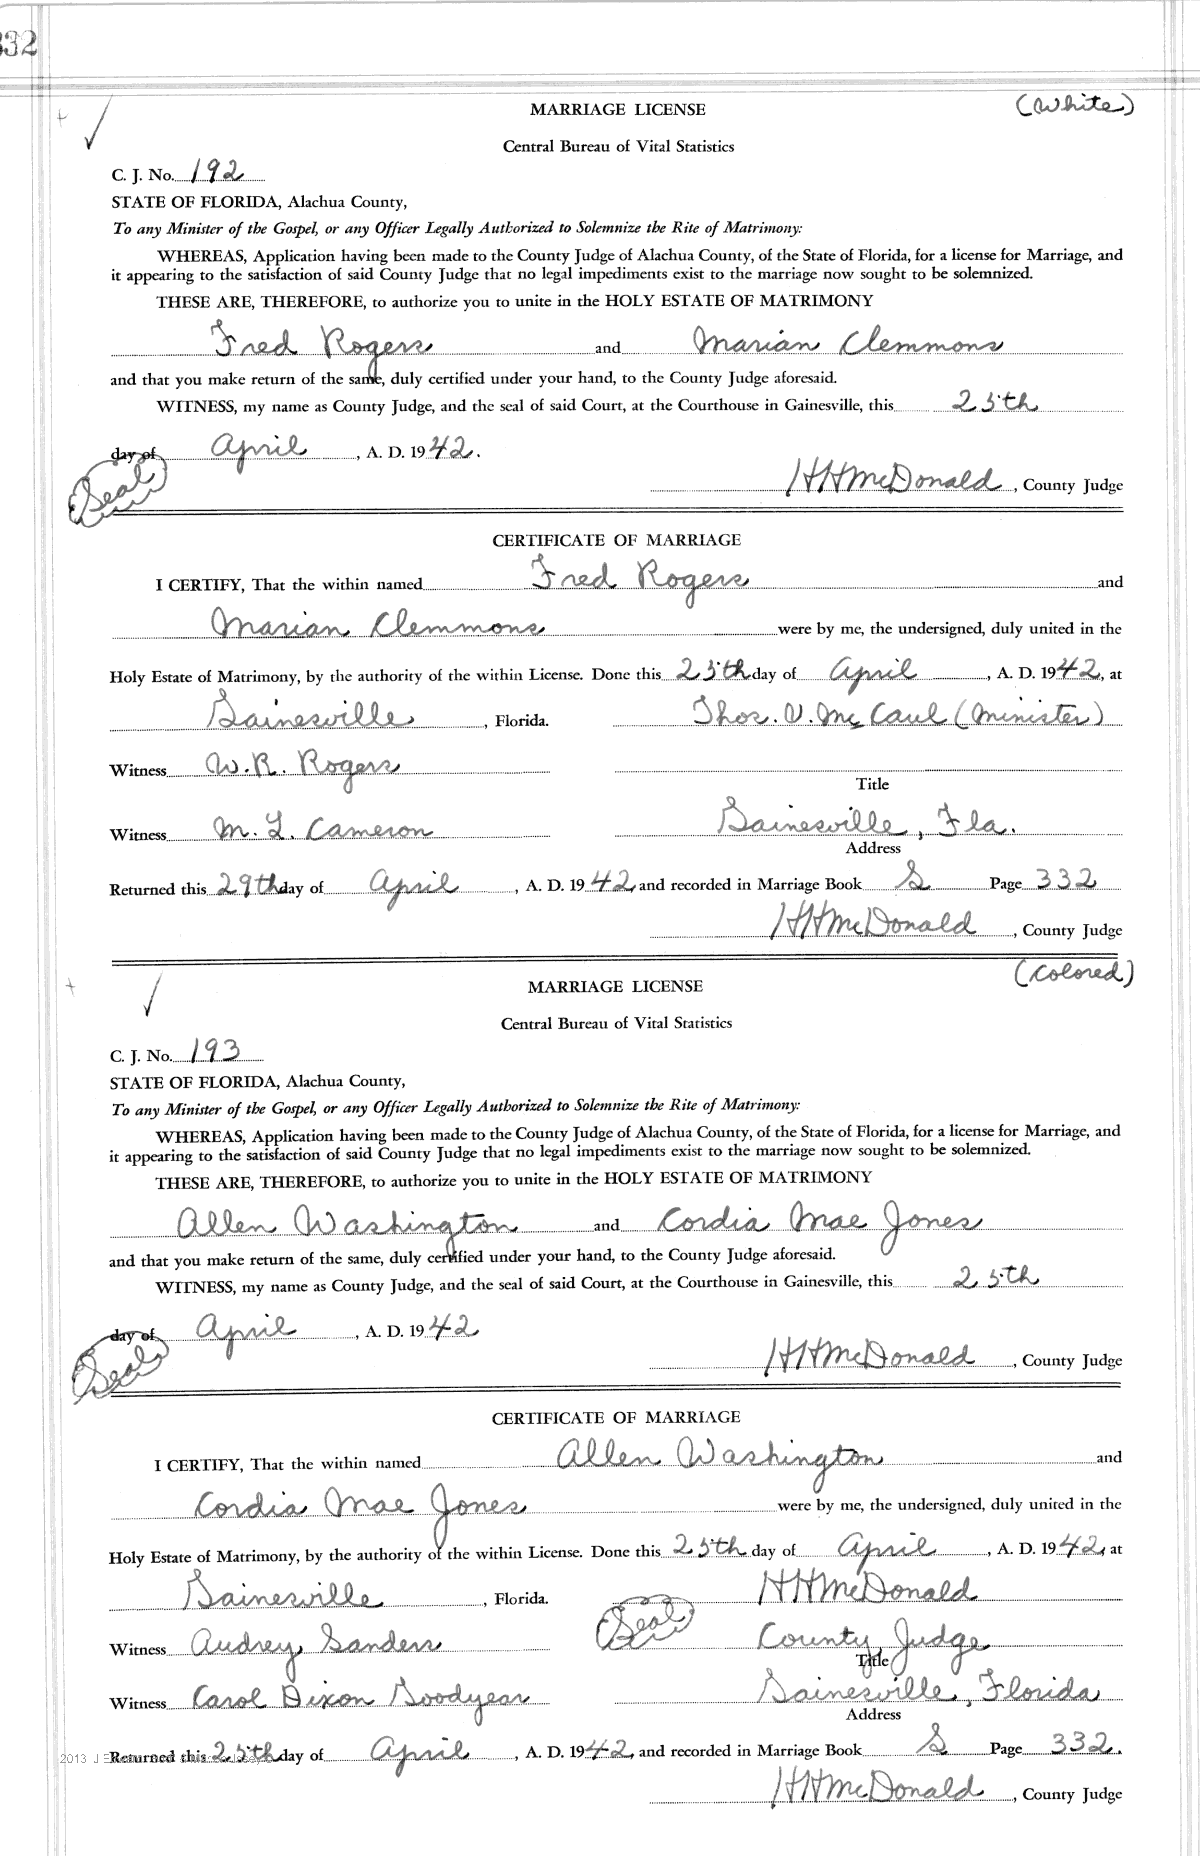 332
(White)
MARRIAGE LICENSE
Central Bureau of Vital Statistics
C. J. No. 192
STATE OF FLORIDA, Alachua County,
To any Minister of the Gospel, or any Officer Legally Authorized to Solemnize the Rite of Matrimony:
WHEREAS, Application having been made to the County Judge of Alachua County, of the State of Florida, for a license for Marriage, and
it appearing to the satisfaction of said County Judge that no legal impediments exist to the marriage now sought to be solemnized.
THESE ARE, THEREFORE, to authorize you to unite in the HOLY ESTATE OF MATRIMONY
Fred Rogers and Marian Clemmons
and that you make return of the same, duly certified under your hand, to the County Judge aforesaid.
WITNESS, my name as County Judge, and the seal of said Court, at the Courthouse in Gainesville, this 25th
day of April, A. D. 1942.
(Seal)
HHMcDonald, County Judge
CERTIFICATE OF MARRIAGE
I CERTIFY, That the within named Fred Rogers and
Marian Clemmons were by me, the undersigned, duly united in the
Holy Estate of Matrimony, by the authority of the within License. Done this 25th day of April, A. D. 1942, at
Gainesville, Florida. Thos. V. McCaul (Minister)
Witness W. R. Rogers
Title
Witness M. L. Cameron Gainesville, Fla.
Address
Returned this 29th day of April, A. D. 1942, and recorded in Marriage Book S Page 332
HHMcDonald, County Judge
(Colored)
MARRIAGE LICENSE
Central Bureau of Vital Statistics
C. J. No. 193
STATE OF FLORIDA, Alachua County,
To any Minister of the Gospel, or any Officer Legally Authorized to Solemnize the Rite of Matrimony:
WHEREAS, Application having been made to the County Judge of Alachua County, of the State of Florida, for a license for Marriage, and
it appearing to the satisfaction of said County Judge that no legal impediments exist to the marriage now sought to be solemnized.
THESE ARE, THEREFORE, to authorize you to unite in the HOLY ESTATE OF MATRIMONY
Allen Washington and Cordia Mae Jones
and that you make return of the same, duly certified under your hand, to the County Judge aforesaid.
WITNESS, my name as County Judge, and the seal of said Court, at the Courthouse in Gainesville, this 25th
day of April, A. D. 1942
(Seal)
HHMcDonald, County Judge
CERTIFICATE OF MARRIAGE
I CERTIFY, That the within named Allen Washington and
Cordia Mae Jones were by me, the undersigned, duly united in the
Holy Estate of Matrimony, by the authority of the within License. Done this 25th day of April, A. D. 1942, at
Gainesville, Florida. HHMcDonald
(Seal)
Witness Audrey Sanders County Judge
Title
Witness Carol Dixon Goodyear Gainesville, Florida
Address
2013 J
Returned this 25th day of April, A. D. 1942, and recorded in Marriage Book S Page 332.
HHMcDonald, County Judge